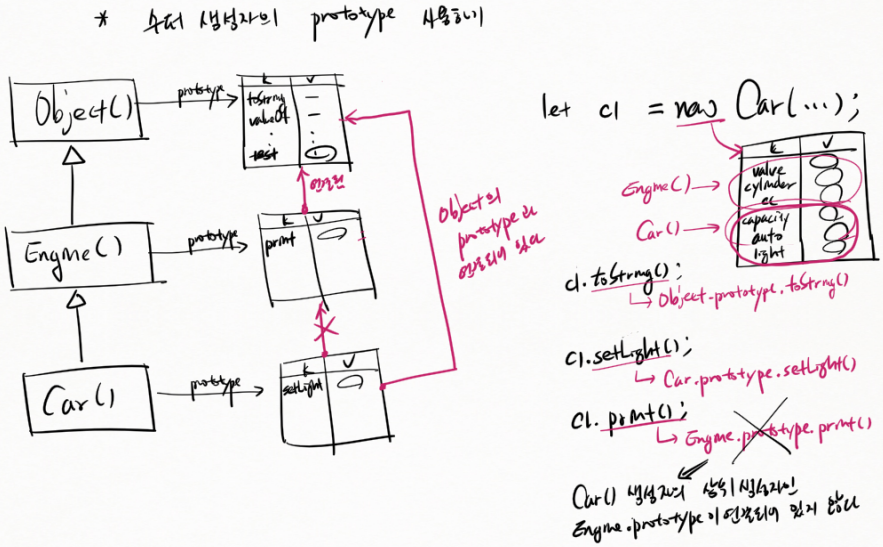 * 수퍼 생성자의 prototype 사용하기
Object()
prototype
k v
toString —
valueOf —
⋮ ⋮
test
연결됨
Engine()
prototype
k v
print
Car()
prototype
k v
setLight
Object의
prototype과
연결되어 있다
let c1 = new Car(...);
k v
valve
cylinder
cc
capacity
auto
light
Engine() →
Car() →
c1.toString();
↳ Object.prototype.toString()
c1.setLight();
↳ Car.prototype.setLight()
c1.print();
↳ Engine.prototype.print()
Car() 생성자의 상위 생성자인
Engine.prototype이 연결되어 있지 않다